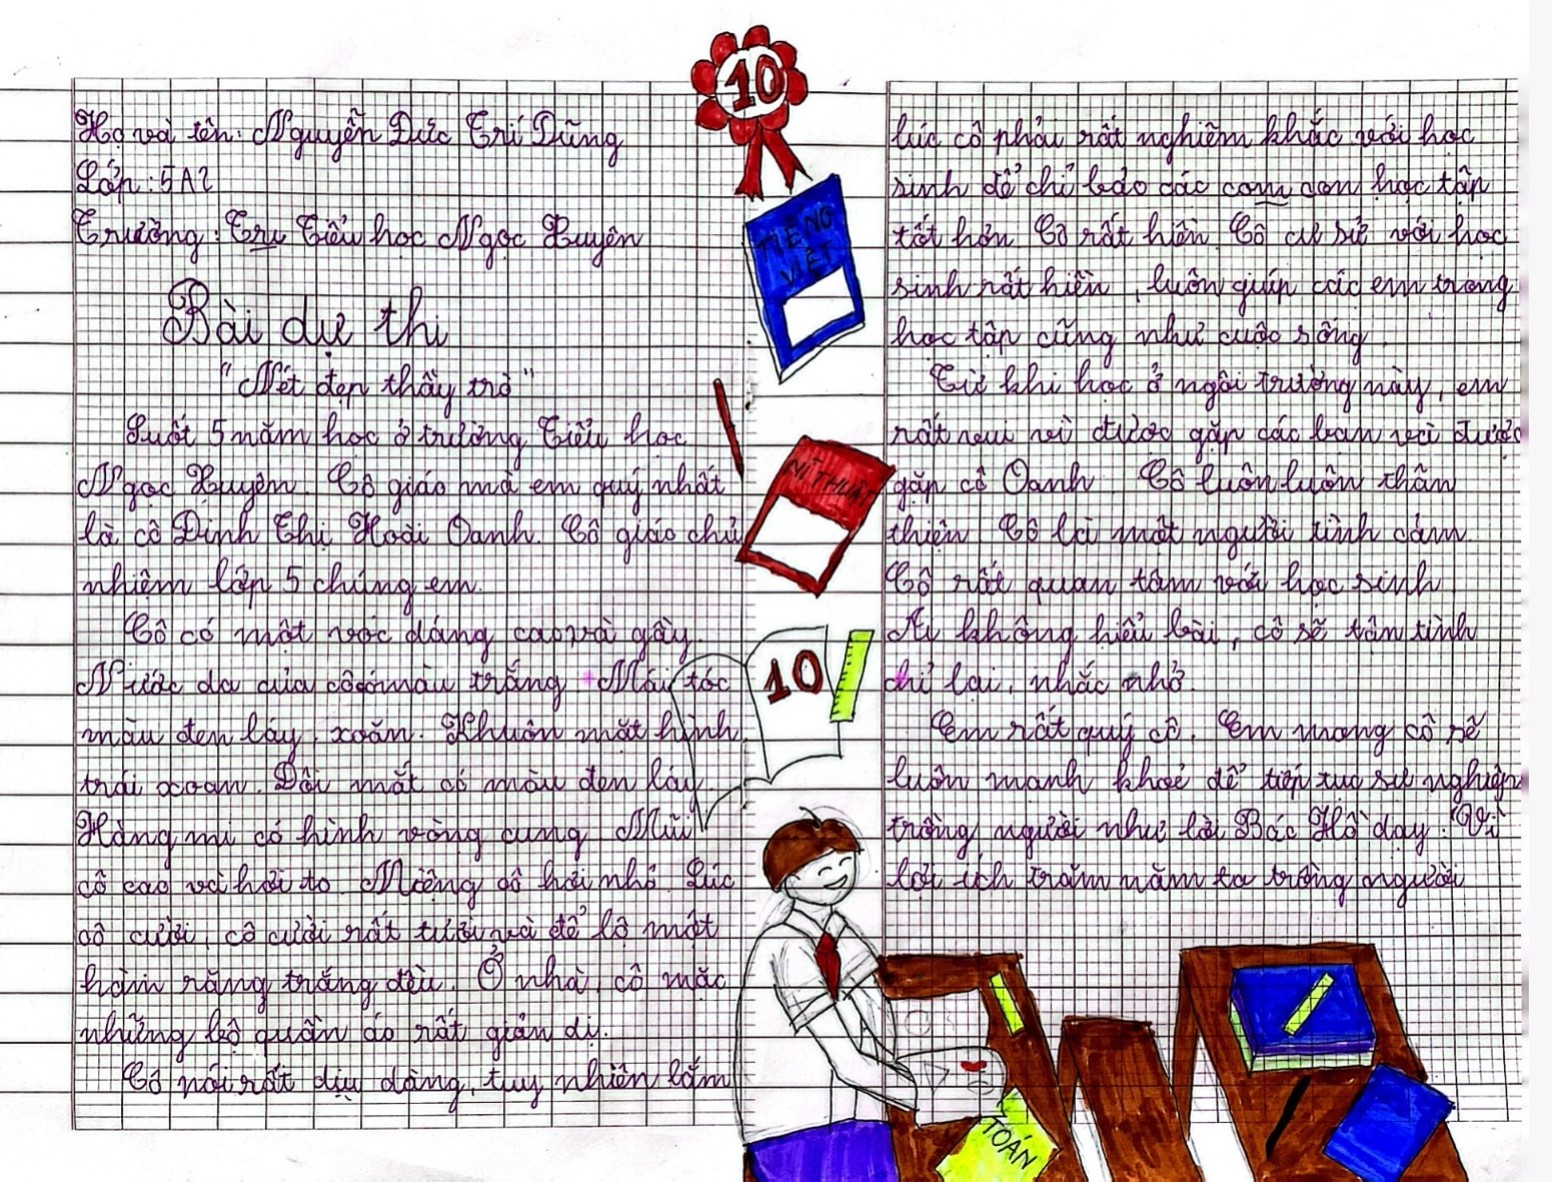 Họ và tên: Nguyễn Đức Trí Dũng
Lớp: 5A2
Trường: Tru Tiểu học Ngọc Xuyên
Bài dự thi
"Nét đẹp thầy trò"
Suốt 5 năm học ở trường Tiểu học
Ngọc Xuyên. Cô giáo mà em quý nhất
là cô Đinh Thị Hoài Oanh. Cô giáo chủ
nhiệm lớp 5 chúng em.
Cô có một vóc dáng cao và gầy.
Nước da của cô có màu trắng. Mái tóc
màu đen láy, xoăn. Khuôn mặt hình
trái xoan. Đôi mắt có màu đen láy.
Hàng mi có hình vòng cung. Mũi
cô cao và hơi to. Miệng cô hơi nhỏ. Lúc
cô cười, cô cười rất tươi và để lộ một
hàm răng trắng đều. Ở nhà, cô mặc
những bộ quần áo rất giản dị.
Cô nói rất dịu dàng, tuy nhiên lắm
10
TIẾNG
VIỆT
MĨ THUẬT
10
TOÁN
lúc cô phải rất nghiêm khắc với học
sinh để chỉ bảo các com con học tập
tốt hơn. Cô rất hiền. Cô cư sử với học
sinh rất hiền, luôn giúp các em trong
học tập cũng như cuộc sống.
Từ khi học ở ngôi trường này, em
rất vui vì được gặp các bạn và được
gặp cô Oanh. Cô luôn luôn thân
thiện. Cô là một người tình cảm.
Cô rất quan tâm với học sinh.
Ai không hiểu bài, cô sẽ tân tình
chỉ lại, nhắc nhở.
Em rất quý cô. Em mong cô sẽ
luôn mạnh khoẻ để tiếp tục sự nghiệp
trồng người như lời Bác Hồ dạy: Vì
lợi ích trăm năm ta trồng người